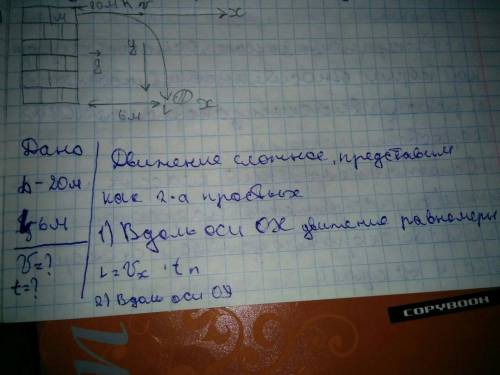 20м
v
x
м
g
y
6м
L
x
Дано
h - 20м
L 6м
V = ?
t = ?
Движение сложное, представим
как 2-а простых
1) Вдоль оси OX движение равномерн
L = Vx · tп
2) Вдоль оси OY
COPYBOOK